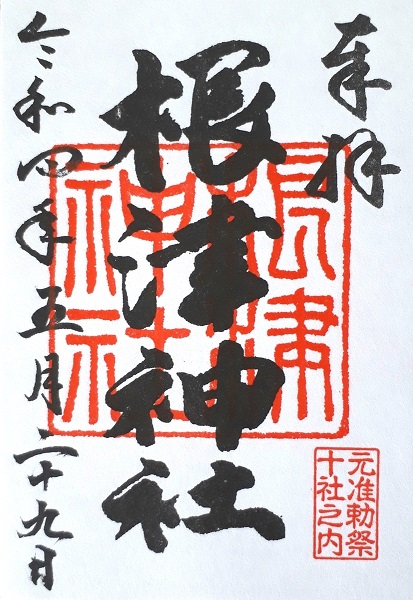 奉拝
根津神社
根津神社
元准勅祭
十社之内
令和四年五月二十九日